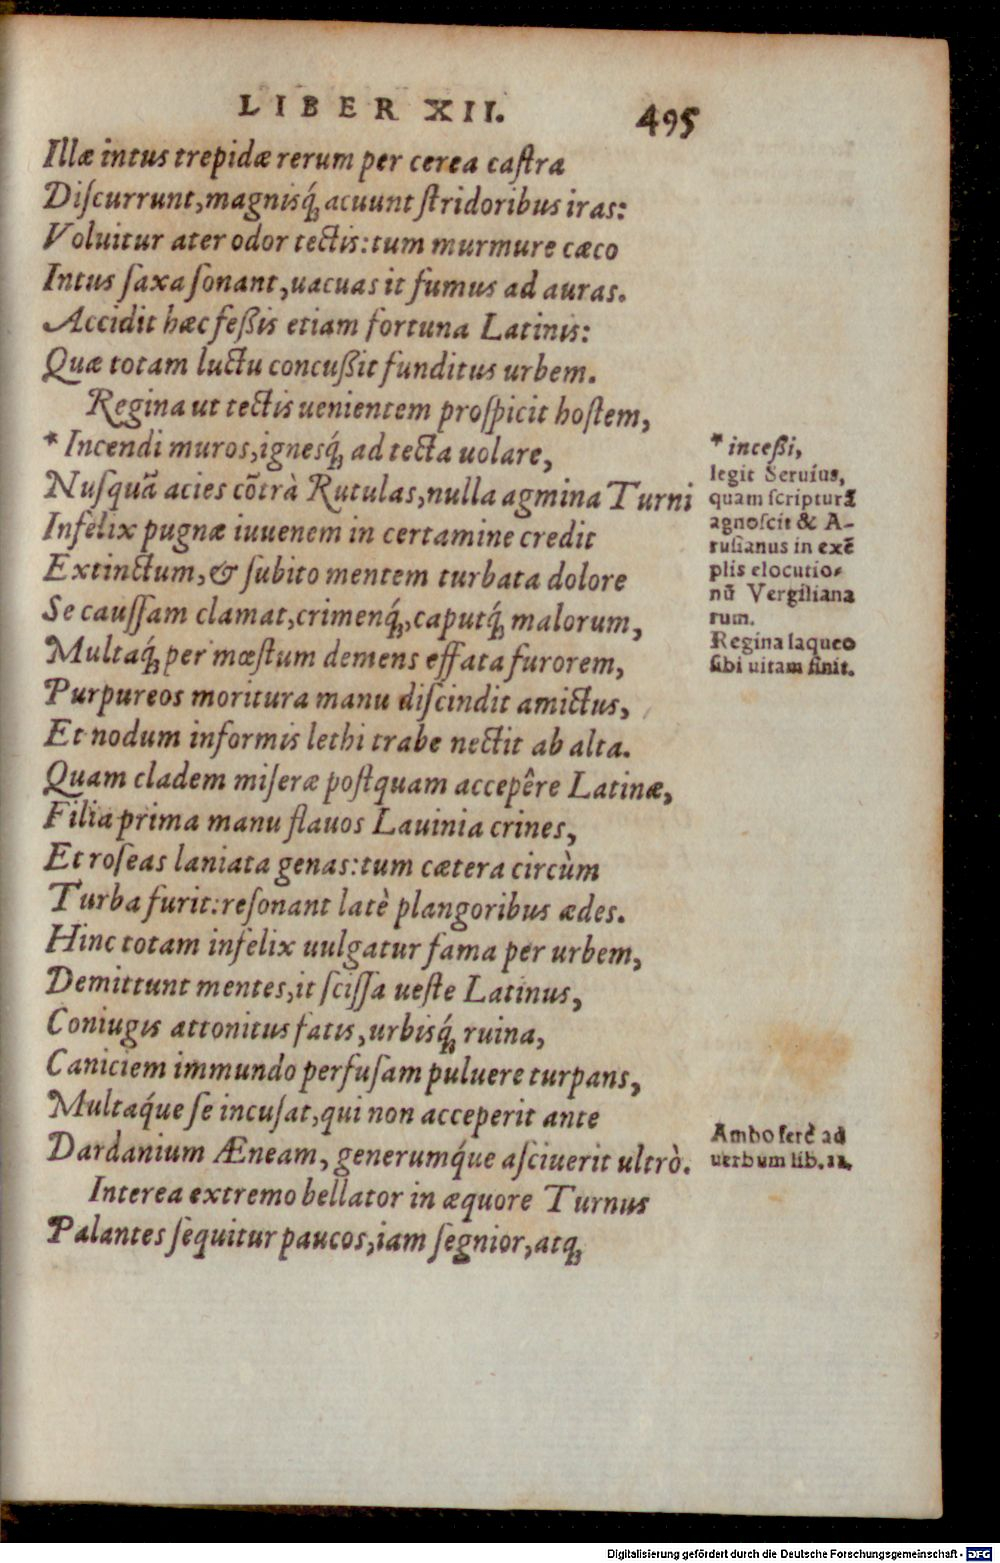 LIBER XII. 495
Illæ intus trepidæ rerum per cerea caſtra
Diſcurrunt, magnisq́ꝫ acuunt ſtridoribus iras:
Voluitur ater odor tectis: tum murmure cæco
Intus ſaxa ſonant, uacuas it fumus ad auras.
Accidit hæc feßis etiam fortuna Latinis:
Quæ totam luctu concußit funditus urbem.
Regina ut tectis uenientem proſpicit hoſtem,
* Incendi muros, ignesq́ꝫ ad tecta uolare,
Nuſquã acies cõtrà Rutulas, nulla agmina Turni
Infelix pugnæ iuuenem in certamine credit
Extinctum, & ſubito mentem turbata dolore
Se cauſſam clamat, crimenq́ꝫ, caputq́ꝫ malorum,
Multaq́ꝫ per mœſtum demens effata furorem,
Purpureos moritura manu diſcindit amictus,
Et nodum informis lethi trabe nectit ab alta.
Quam cladem miſeræ poſtquam accepêre Latinæ,
Filia prima manu flauos Lauinia crines,
Et roſeas laniata genas: tum cætera circùm
Turba furit: reſonant latè plangoribus ædes.
Hinc totam infelix uulgatur fama per urbem,
Demittunt mentes, it ſciſſa ueſte Latinus,
Coniugis attonitus fatis, urbisq́ꝫ ruina,
Caniciem immundo perfuſam puluere turpans,
Multaq́ue ſe incuſat, qui non acceperit ante
Dardanium Æneam, generumq́ue aſciuerit ultrò.
Interea extremo bellator in æquore Turnus
Palantes ſequitur paucos, iam ſegnior, atqꝫ
* inceßi,
legit Seruius,
quam ſcripturã
agnoſcit & A-
ruſianus in exẽ
plis elocutio-
nũ Vergiliana
rum.
Regina laqueo
ſibi uitam finit.
Ambo ferè ad
uerbum lib. 11.
Digitalisierung gefördert durch die Deutsche Forschungsgemeinschaft - DFG